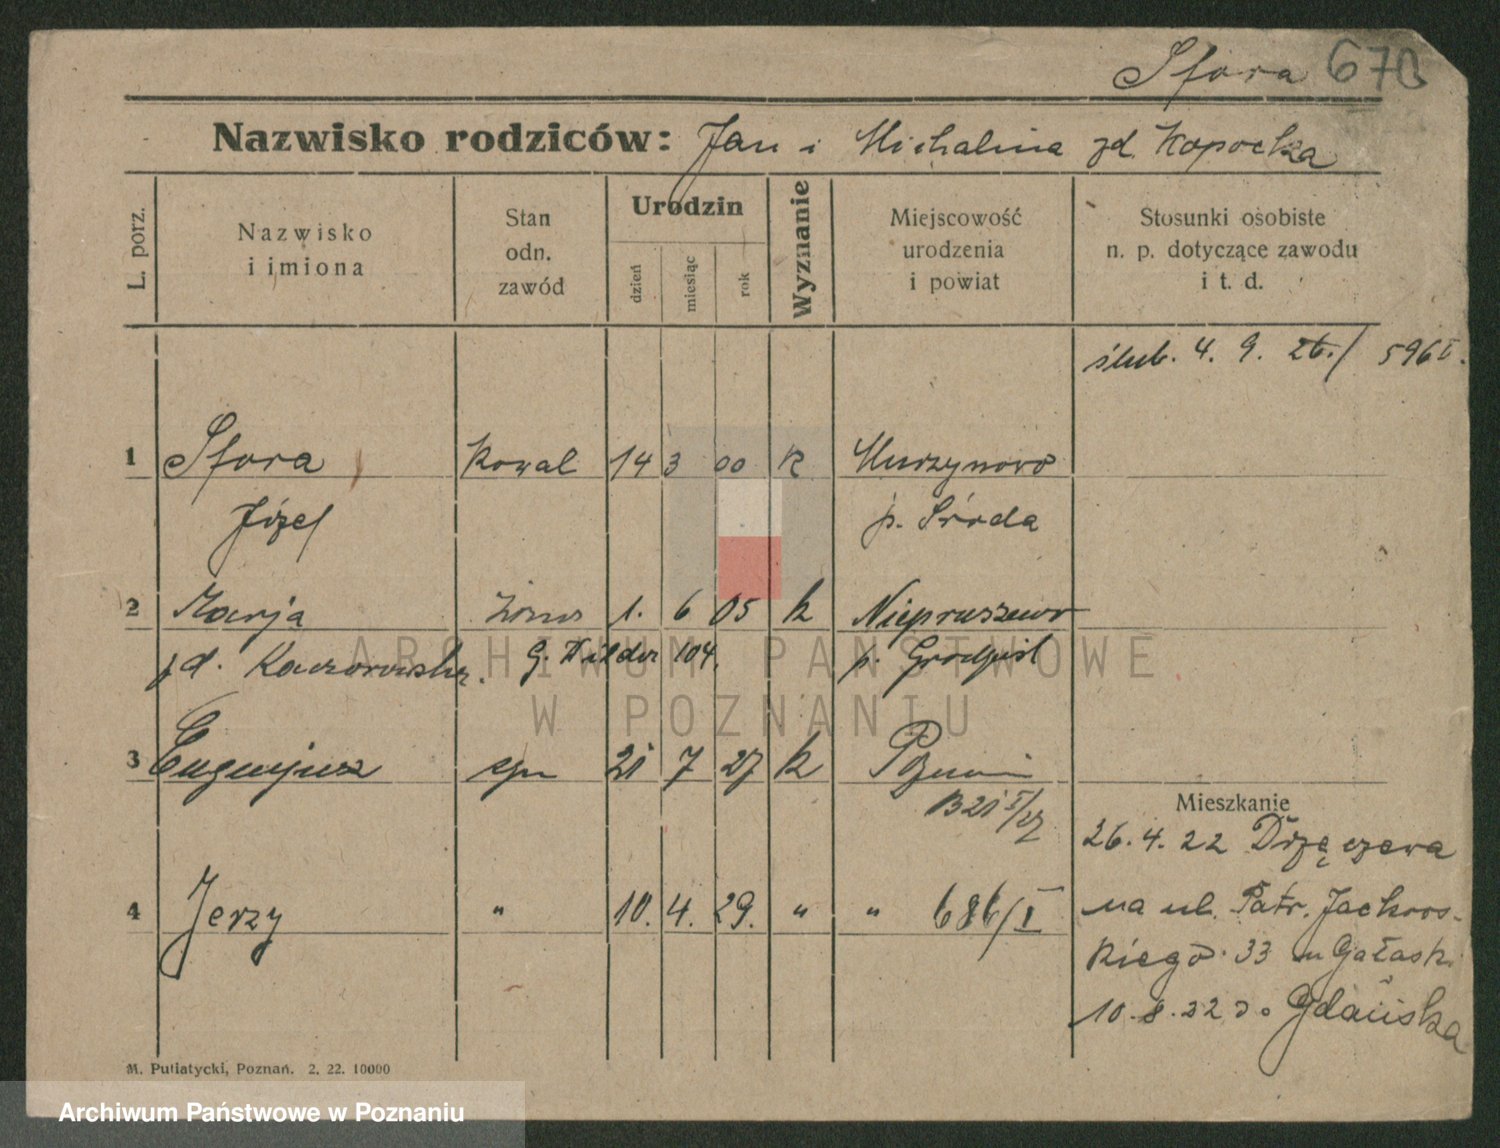 Sfora 670
Nazwisko rodziców: Jan i Michalina zd. Kopocka
L. porz.
Nazwisko
i imiona
Stan
odn.
zawód
Urodzin
dzień
miesiąc
rok
Wyznanie
Miejscowość
urodzenia
i powiat
Stosunki osobiste
n. p. dotyczące zawodu
i t. d.
ślub. 4. 9. 26./ 596 I.
1 Sfora Kowal 14 3 00 K Murzynowo
Józef p. Środa
2 Marja żona 1. 6 05 k Niepruszewo
zd. Kaczorowska. G. Wilda 104. p. Grodzisk
ARCHIWUM PAŃSTWOWE
W POZNANIU
3 Eugenjusz syn 21 7 27 k Poznań
B21 I/27
Mieszkanie
26.4.22 Drzęczewa
4 Jerzy " 10. 4. 29. " " 686/I
na ul. Patr. Jackows-
kiego 33 m Gałask.
10.8.22 do Gdańska
M. Putiatycki, Poznań. 2. 22. 10000
Archiwum Państwowe w Poznaniu